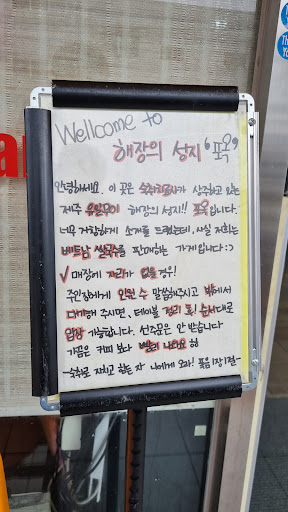 Wellcome to
해장의 성지 '포옥'
안녕하세요. 이 곳은 숙취치료사가 상주하고 있는
제주 유일무이 해장의 성지!! 포옥입니다.
너무 거창하게 소개를 드렸는데, 사실 저희는
베트남 쌀국수를 판매하는 가게입니다 :)
✓ 매장에 자리가 없을 경우!
주인장에게 인원 수 말씀해주시고 밖에서
대기해 주시면, 테이블 정리 후! 순서대로
입장 가능합니다. 선주문은 안 받습니다
가끔은 커피 보다 빨리 나와요 혀
-숙취로 지치고 힘든 자 나에게 오라! 폭음 1장 1절-